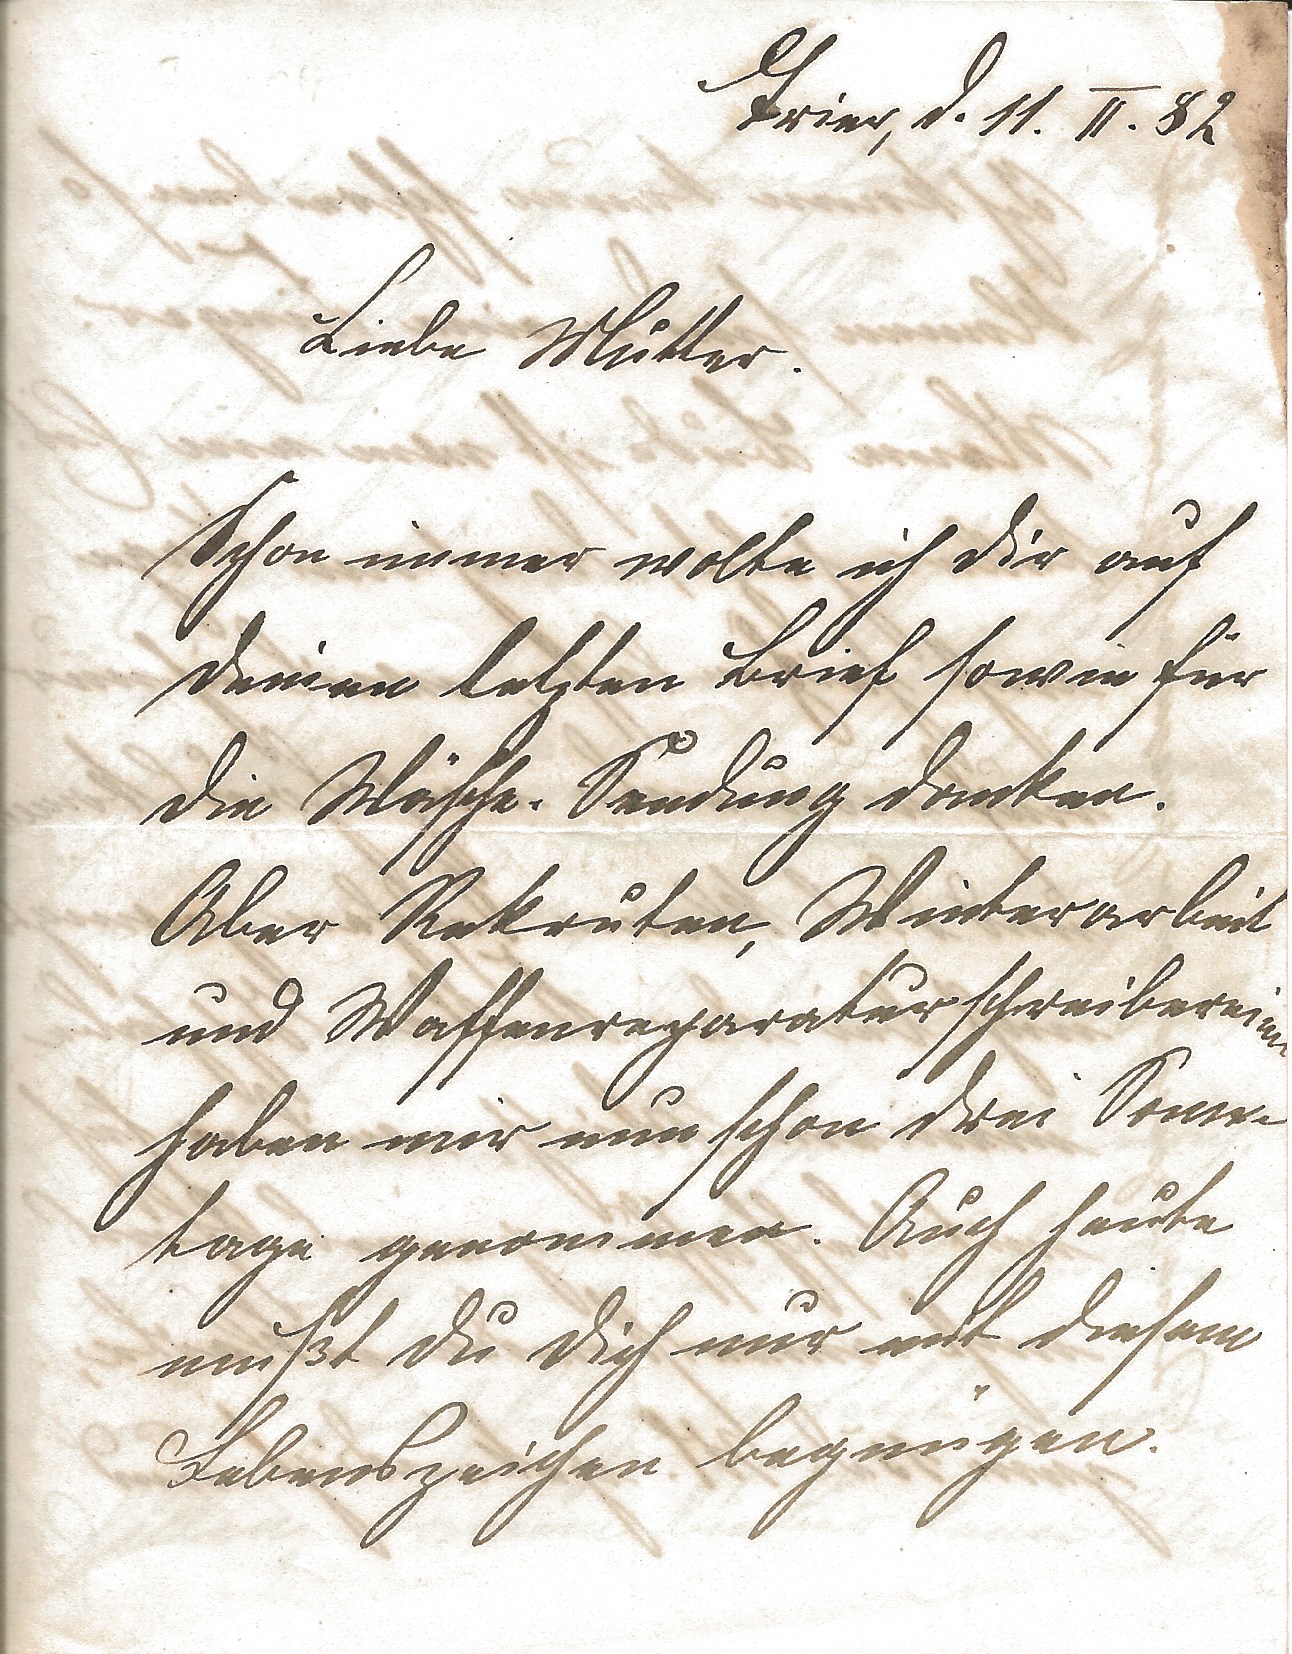 Trier, d. 11. II. 82
Liebe Mutter.
Schon immer wolte ich dir auf
deinen letzten Brief sowie für
die Wäsche-Sendung danken.
Aber Rekruten, Winterarbeit
und Waffenreparaturschreibereien
haben mir nun schon drei Sonn-
tage genommen. Auch heute
mußt du dich nur mit diesem
Lebenszeichen begnügen.